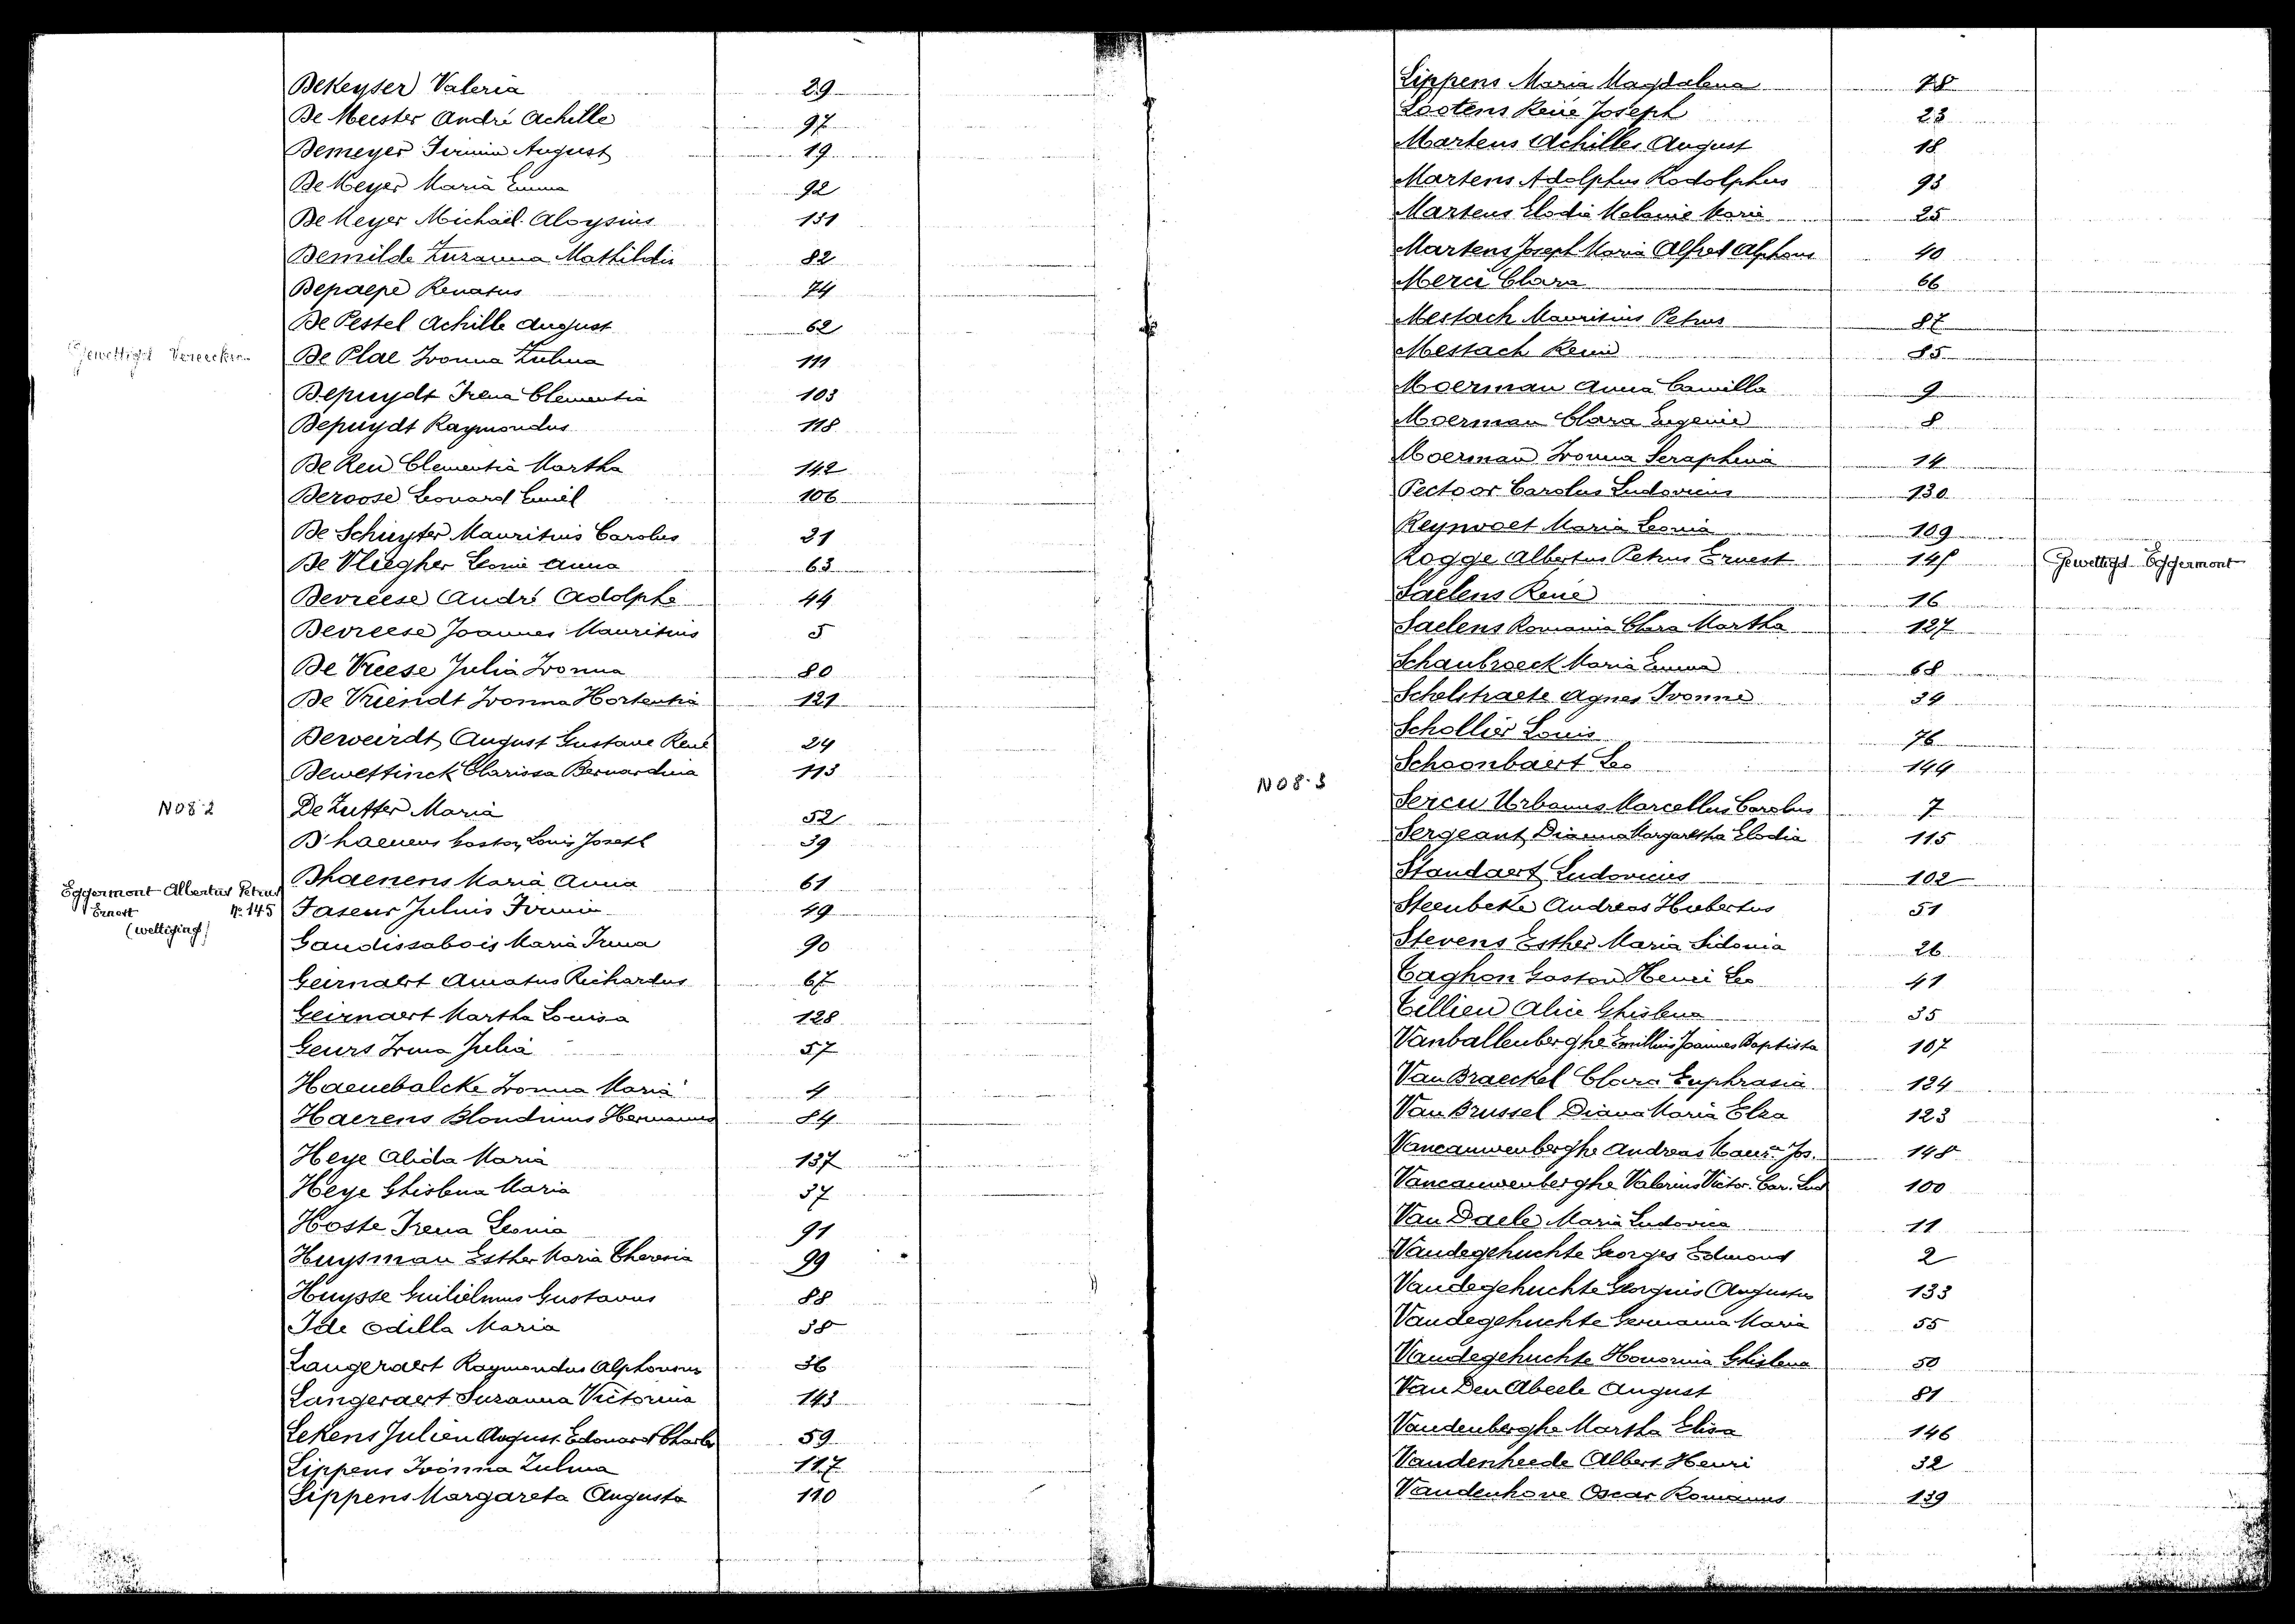 DeKeyser Valeria 29
De Meester André Achille 97
Demeyer Firmin August 19
De Meyer Maria Emma 92
De Meyer Michaël Aloysius 131
Demilde Zuzanna Mathildis 82
Depaepe Renatus 74
De Pestel Achille August 62
Gewettigd De Plae Ivonna Zulma 111
Depuydt Irena Clementia 103
Depuydt Raymondus 118
De Reu Clementia Martha 142
Deroose Leonard Emiel 106
De Schuyter Mauritius Carolus 21
De Vliegher Leonie Anna 63
Devreese André Adolphe 44
Devreese Joannes Mauritius 5
De Vreese Julia Ivonna 80
De Vriendt Ivonna Hortentia 121
Deweirdt August Gustave René 24
Dewettinck Clarissa Bernardina 113
N08-2 De Zutter Maria 52
D'haenens Gaston Louis Joseph 39
Dhaenens Maria Anna 61
Eggermont Albertus Petrus
Ernest N° 145
(wettiging)
Faseur Julius Firmin 49
Gaudissabois Maria Irma 90
Geirnaert Amatus Richardus 67
Geirnaert Martha Louisa 128
Geurs Irma Julia 57
Haenebalcke Ivonna Maria 4
Haerens Blondinus Hermanus 84
Heye Alida Maria 137
Heye Ghislena Maria 37
Hoste Irena Leonia 91
Huysman Esther Maria Theresia 99
Huysse Guilielmus Gustavus 88
Ide Odilla Maria 38
Langeraert Raymondus Alphonsus 36
Langeraert Suzanna Victorina 143
Lekens Julien August Edouard Charles 59
Lippens Ivonna Zulma 117
Lippens Margareta Augusta 110
Lippens Maria Magdalena 78
Lootens René Joseph 23
Martens Achilles August 18
Martens Adolphus Rodolphus 93
Martens Elodie Melanie Marie 25
Martens Joseph Maria Alfred Alphons 40
Merci Clara 66
Mestach Mauritius Petrus 87
Mestach Remi 85
Moerman Anna Camilla 9
Moerman Clara Eugenie 8
Moerman Ivonna Seraphina 14
Pectoor Carolus Ludovicus 130
Reynvoet Maria Leonia 109
Rogge Albertus Petrus Ernest 145 Gewettigd Eggermont
Saelens René 16
Saelens Romania Clara Martha 127
Schaubroeck Maria Emma 68
Schelstraete Agnes Ivonne 34
Schollier Louis 76
Schoonbaert Leo 144
N08-3 Sercu Urbanus Marcellus Carolus 7
Sergeant Dianna Margaretha Elodia 115
Standaert Ludovicus 102
Steenbeke Andreas Hubertus 51
Stevens Esther Maria Sidonia 26
Taghon Gaston Henri Leo 41
Tillieu Alice Ghislena 35
Vanballenberghe Emillius Joannes Baptista 107
Van Braeckel Clara Euphrasia 124
Van Brussel Diana Maria Elza 123
Vancauwenberghe Andreas Maur. Jos. 148
Vancauwenberghe Valerius Victor. Car. Lud 100
Van Daele Maria Ludovica 11
Vandegehuchte Georges Edmond 2
Vandegehuchte Georgius Augustus 133
Vandegehuchte Germania Maria 55
Vandegehuchte Honorina Ghislena 50
Van Den Abeele August 81
Vandenberghe Martha Elisa 146
Vandenheede Albert Henri 32
Vandenhove Oscar Romanus 139